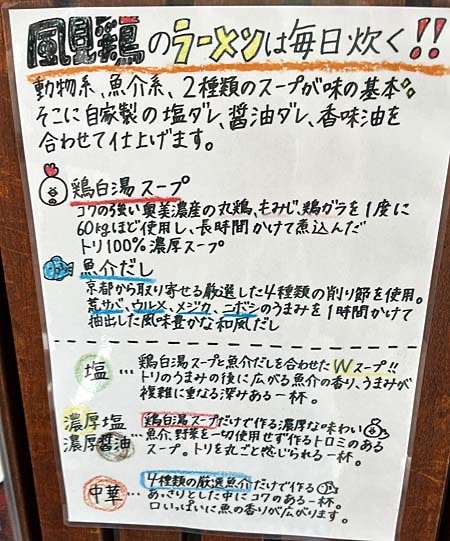 風見鶏のラーメンは毎日炊く!!
動物系、魚介系、2種類のスープが味の基本。
そこに自家製の塩ダレ、醤油ダレ、香味油を
合わせて仕上げます。
鶏白湯スープ
コクの強い奥美濃産の丸鶏、もみじ、鶏ガラを1度に
60kgほど使用し、長時間かけて煮込んだ
トリ100%濃厚スープ
魚介だし
京都から取り寄せる厳選した4種類の削り節を使用。
荒サバ、ウルメ、メジカ、ニボシのうまみを1時間かけて
抽出した風味豊かな和風だし
塩…鶏白湯スープと魚介だしを合わせたWスープ!!
トリのうまみの後に広がる魚介の香り、うまみが
複雑に重なる深みある一杯。
濃厚塩
濃厚醤油…
鶏白湯スープだけで作る濃厚な味わい
魚介、野菜を一切使用せず作るトロミのある
スープ。トリを丸ごと感じられる一杯。
中華…4種類の厳選魚介だけで作る
あっさりとした中にコクのある一杯。
口いっぱいに魚の香りが広がります。